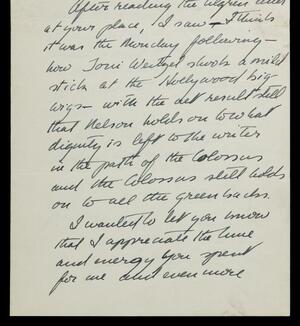 After reading the
at your place, I saw — I think
it was the Monday following —
how Joni shook a mild
stick at the Hollywood big
wigs — with the net result still
that Nelson holds on to what
dignity is left to the writer
in the path of the Colossus
and the Colossus still holds
on to all the greenbacks.
I wanted to let you know
that I appreciate the time
and energy you spent
for me and even more